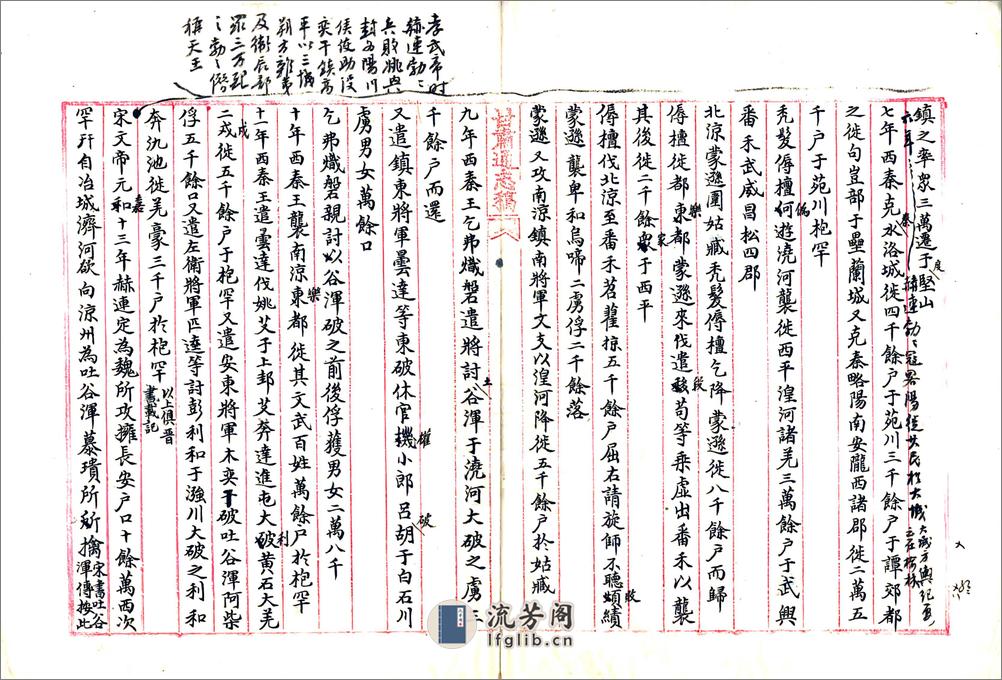 孝武帝时
赫連勃々
兵敗姚興
封于陽川
侯使助没
奕干鎮高
平以三城
朔方雜夷
及衛辰部
眾三万配
之勃々僭
稱天王
鎮之率眾三萬還于度堅山
六年赫連勃々寇畧陽徙其民於大城
七年西秦克水洛城徙四千餘户于苑川三千餘户于譚郊都
之徙句豈部于壘蘭城又克秦略陽南安隴西諸郡徙二萬五
千户于苑川枹罕
秃髮傉檀偽遊澆河襲徙西平湟河諸羌三萬餘户于武興
番禾武威昌松四郡
北涼蒙遜圍姑臧秃髮傉檀乞降蒙遜徙八千餘户而歸
傉檀徙都樂都蒙遜來伐遣段苟等乘虛出番禾以襲
其後徙二千餘家于西平
傉檀伐北涼至番禾苕藋掠五千餘户屈右請旋師不聽敗績
蒙遜襲卑和烏啼二虜俘二千餘落
蒙遜又攻南涼鎮南將軍文支以湟河降徙五千餘户於姑臧
甘肅通志稿
九年西秦王乞弗熾磐遣將討土谷渾于澆河大破之虜三
千餘户而還
又遣鎮東將軍曇達等東破休官權小郎呂破胡于白石川
虜男女萬餘口
乞弗熾磐親討以谷渾破之前後俘獲男女二萬八千
十年西秦王襲南涼樂都徙其文武百姓萬餘户於枹罕
十一年西秦王遣曇達伐姚艾于上邽艾奔達進屯大利破黃石大羌
二戎徙五千餘户于枹罕又遣安東將軍木奕干破吐谷渾阿柴
俘五千餘口又遣左衛將軍匹逵等討彭利和于漒川大破之利和
奔氿池徙羌豪三千户於枹罕以上俱晋書載記
宋文帝元嘉十三年赫連定為魏所攻擁長安户口十餘萬西次
罕幵自冶城濟河欲向涼州為吐谷渾慕璝所擒宋書吐谷渾傳按此
流芳阁
lfglib.cn